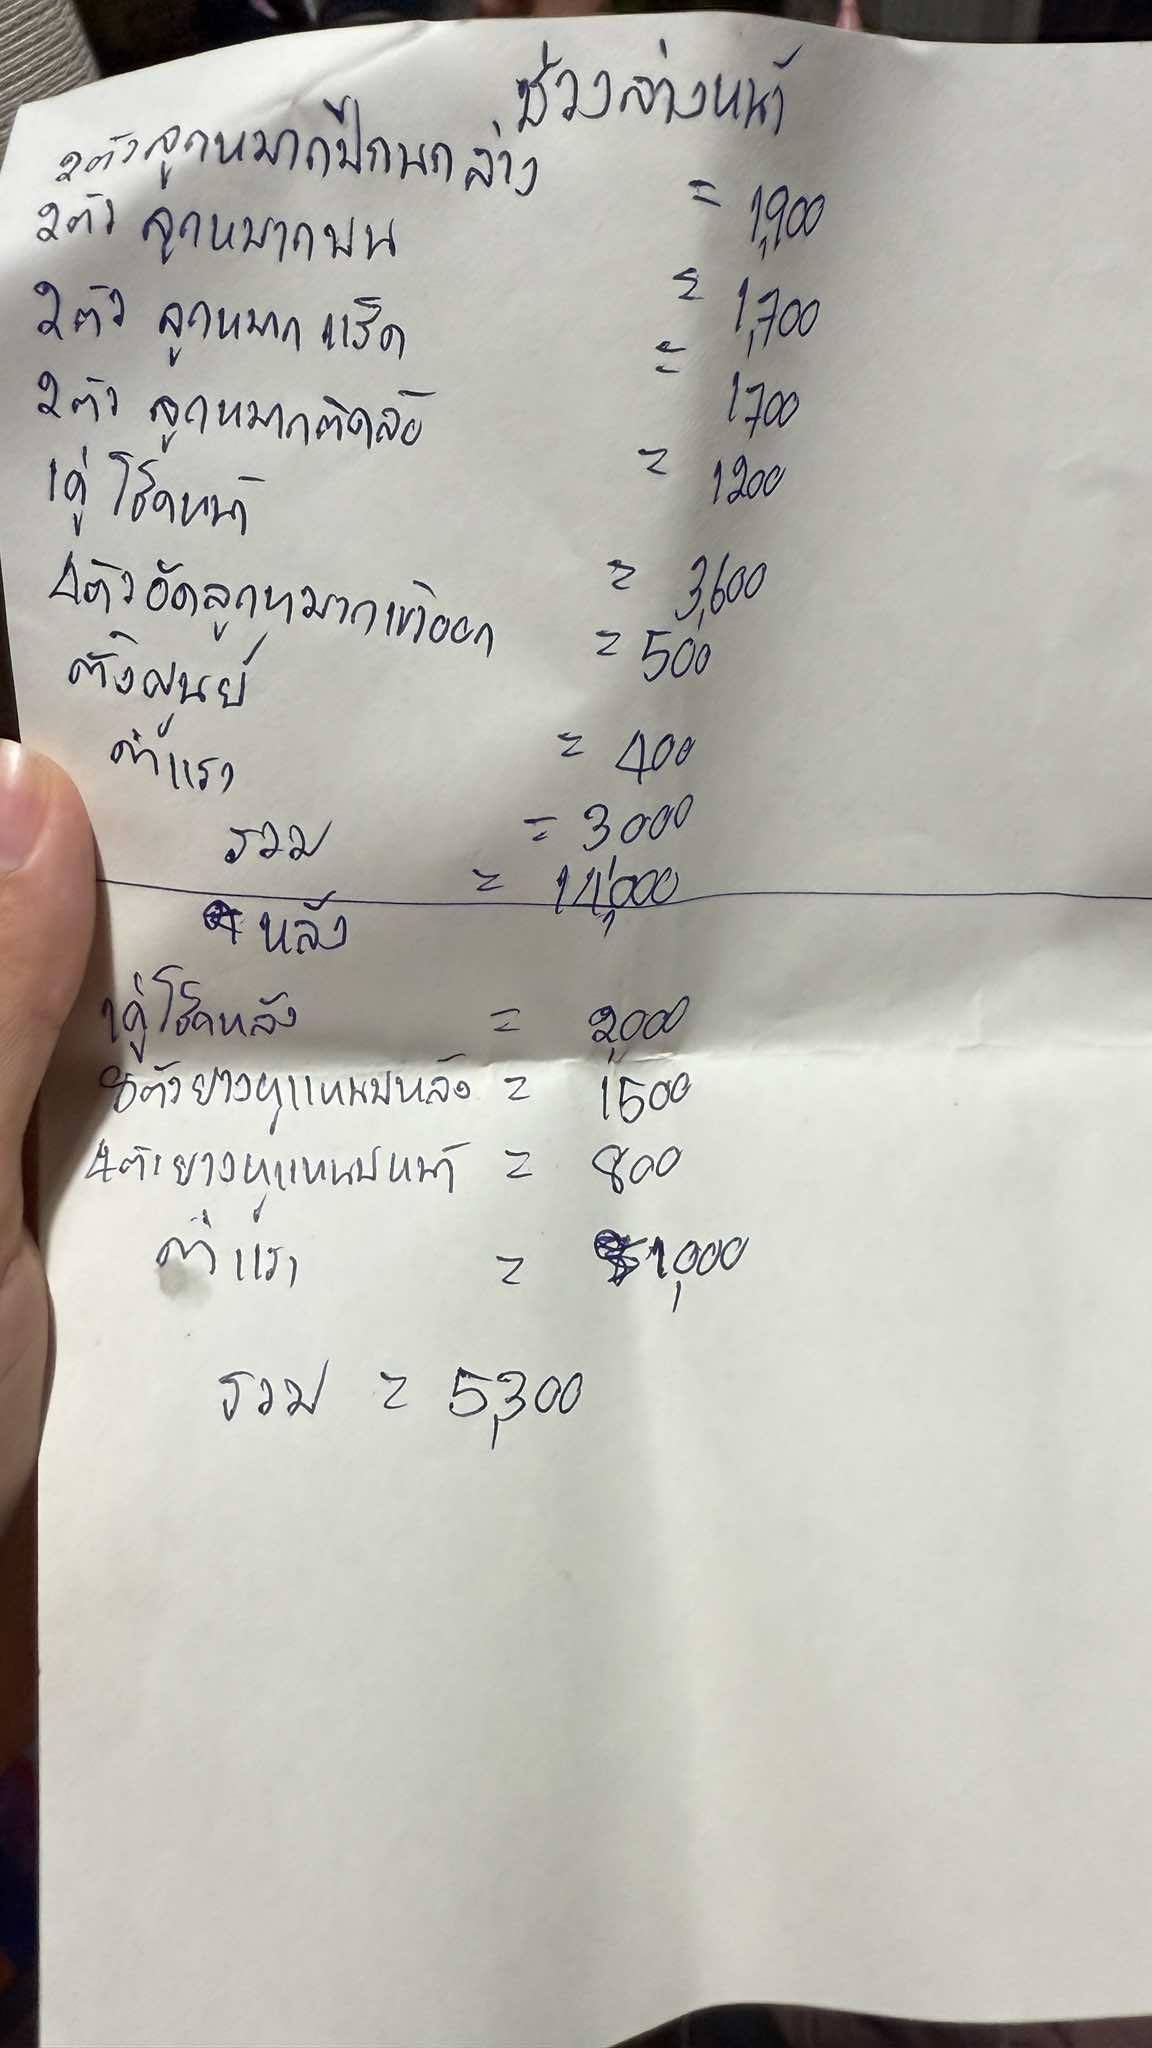 ช่วงล่างหน้า
2ตัว ลูกหมากปีกนกล่าง = 1,900
2ตัว ลูกหมากบน = 1,700
2ตัว ลูกหมากแร็ค = 1700
2ตัว ลูกหมากติดล้อ = 1200
1คู่ โช๊คหน้า = 3,600
4ตัว อัดลูกหมากเข้าออก = 500
ตั้งศูนย์ = 400
ค่าแรง = 3000
รวม = 14,000
หลัง
1คู่ โช๊คหลัง = 2,000
8ตัว ยางหูแหนบหลัง = 1500
4ตัว ยางหูแหนบหน้า = 800
ค่าแรง = 1,000
รวม = 5,300